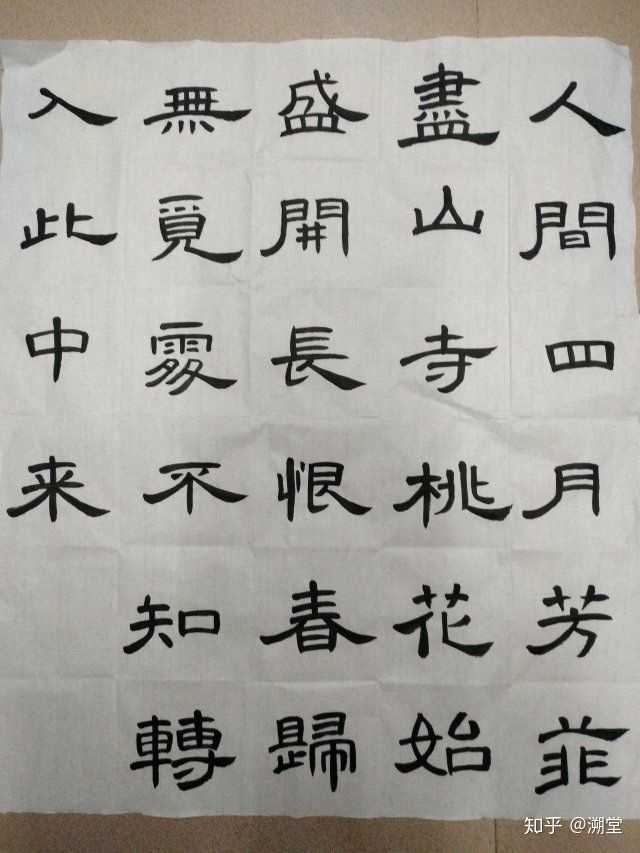 人間四月芳菲
盡山寺桃花始
盛開長恨春歸
無覓處不知轉
入此中来
知乎 @溯堂